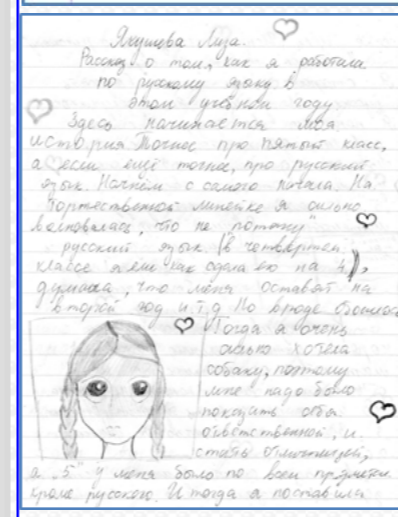 Якушева Лиза.
Рассказ о том, как я работала
по русскому языку в
этом учебном году.
Здесь начинается моя
история. Точнее про пятый класс,
а если ещё точнее, про русский
язык. Начнём с самого начала. На
торжественной линейке я сильно
волновалась, что не "потяну"
русский язык (в четвертом
классе я еле как сдала его на 4),
думала, что меня оставят на
второй год и.т.д. Но вроде обошлось
Тогда я очень
сильно хотела
собаку, поэтому
мне надо было
показать себя
ответственной, и
стать отличницей,
а "5" у меня было по всем предметам
кроме русского. И тогда я поставила